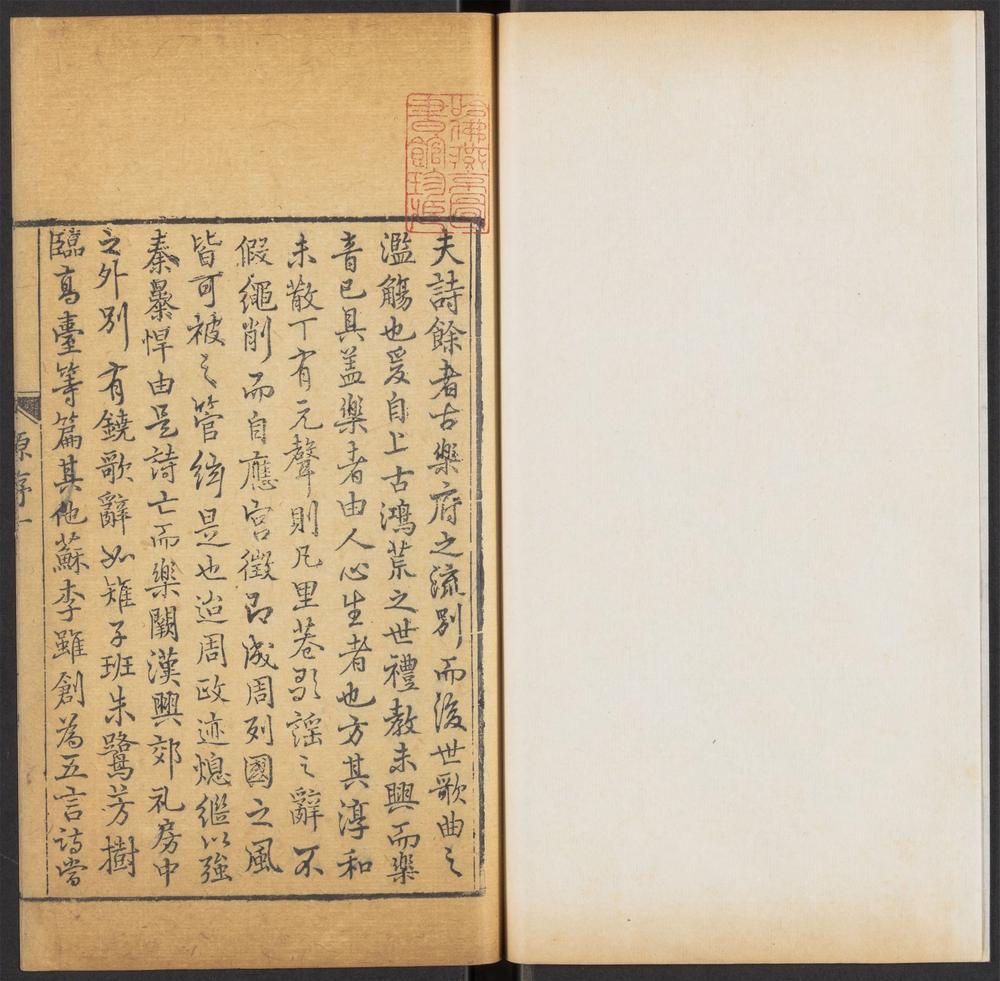 夫詩餘者古樂府之流別而後世歌曲之
濫觴也爰自上古鴻荒之世禮教未興而樂
音已具盖樂者由人心生者也方其淳和
未散下有元聲則凡里巷歌謡之辭不
假繩削而自應宮徵即成周列國之風
皆可被之管絃是也迨周政迹熄繼以強
秦暴悍由是詩亡而樂闕漢興郊礼房中
之外別有鐃歌辭如雉子班朱鷺芳樹
臨高臺等篇其他蘇李雖創為五言詩當
原序 一
哈佛燕京圖
書館珍藏